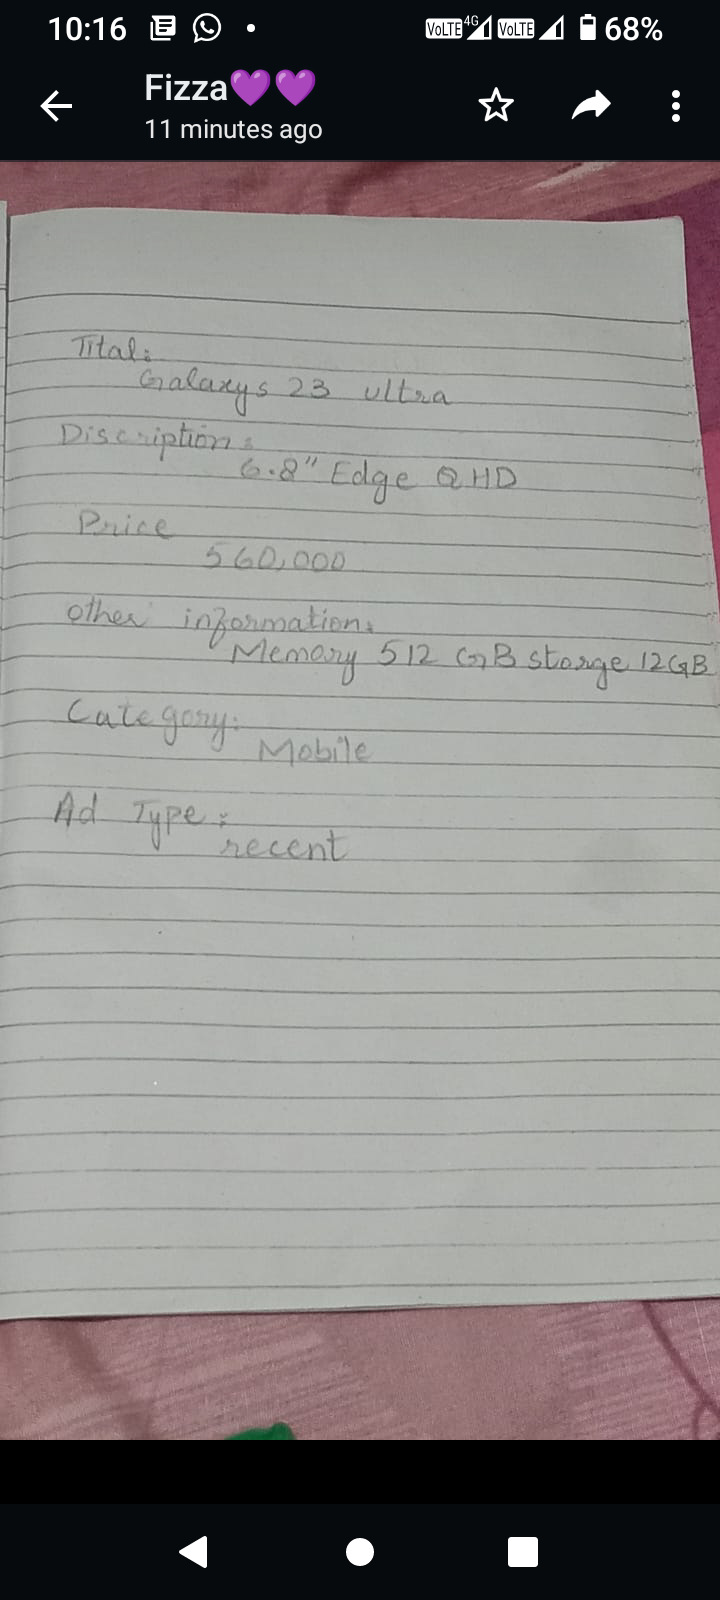 10:16 VoLTE 4G VoLTE 68%
Fizza💜💜
11 minutes ago
Tital:
Galaxys 23 ultra
Discription:
6.8" Edge QHD
Price
560,000
other information:
Memory 512 GB storge 12GB
Category:
Mobile
Ad Type:
recent